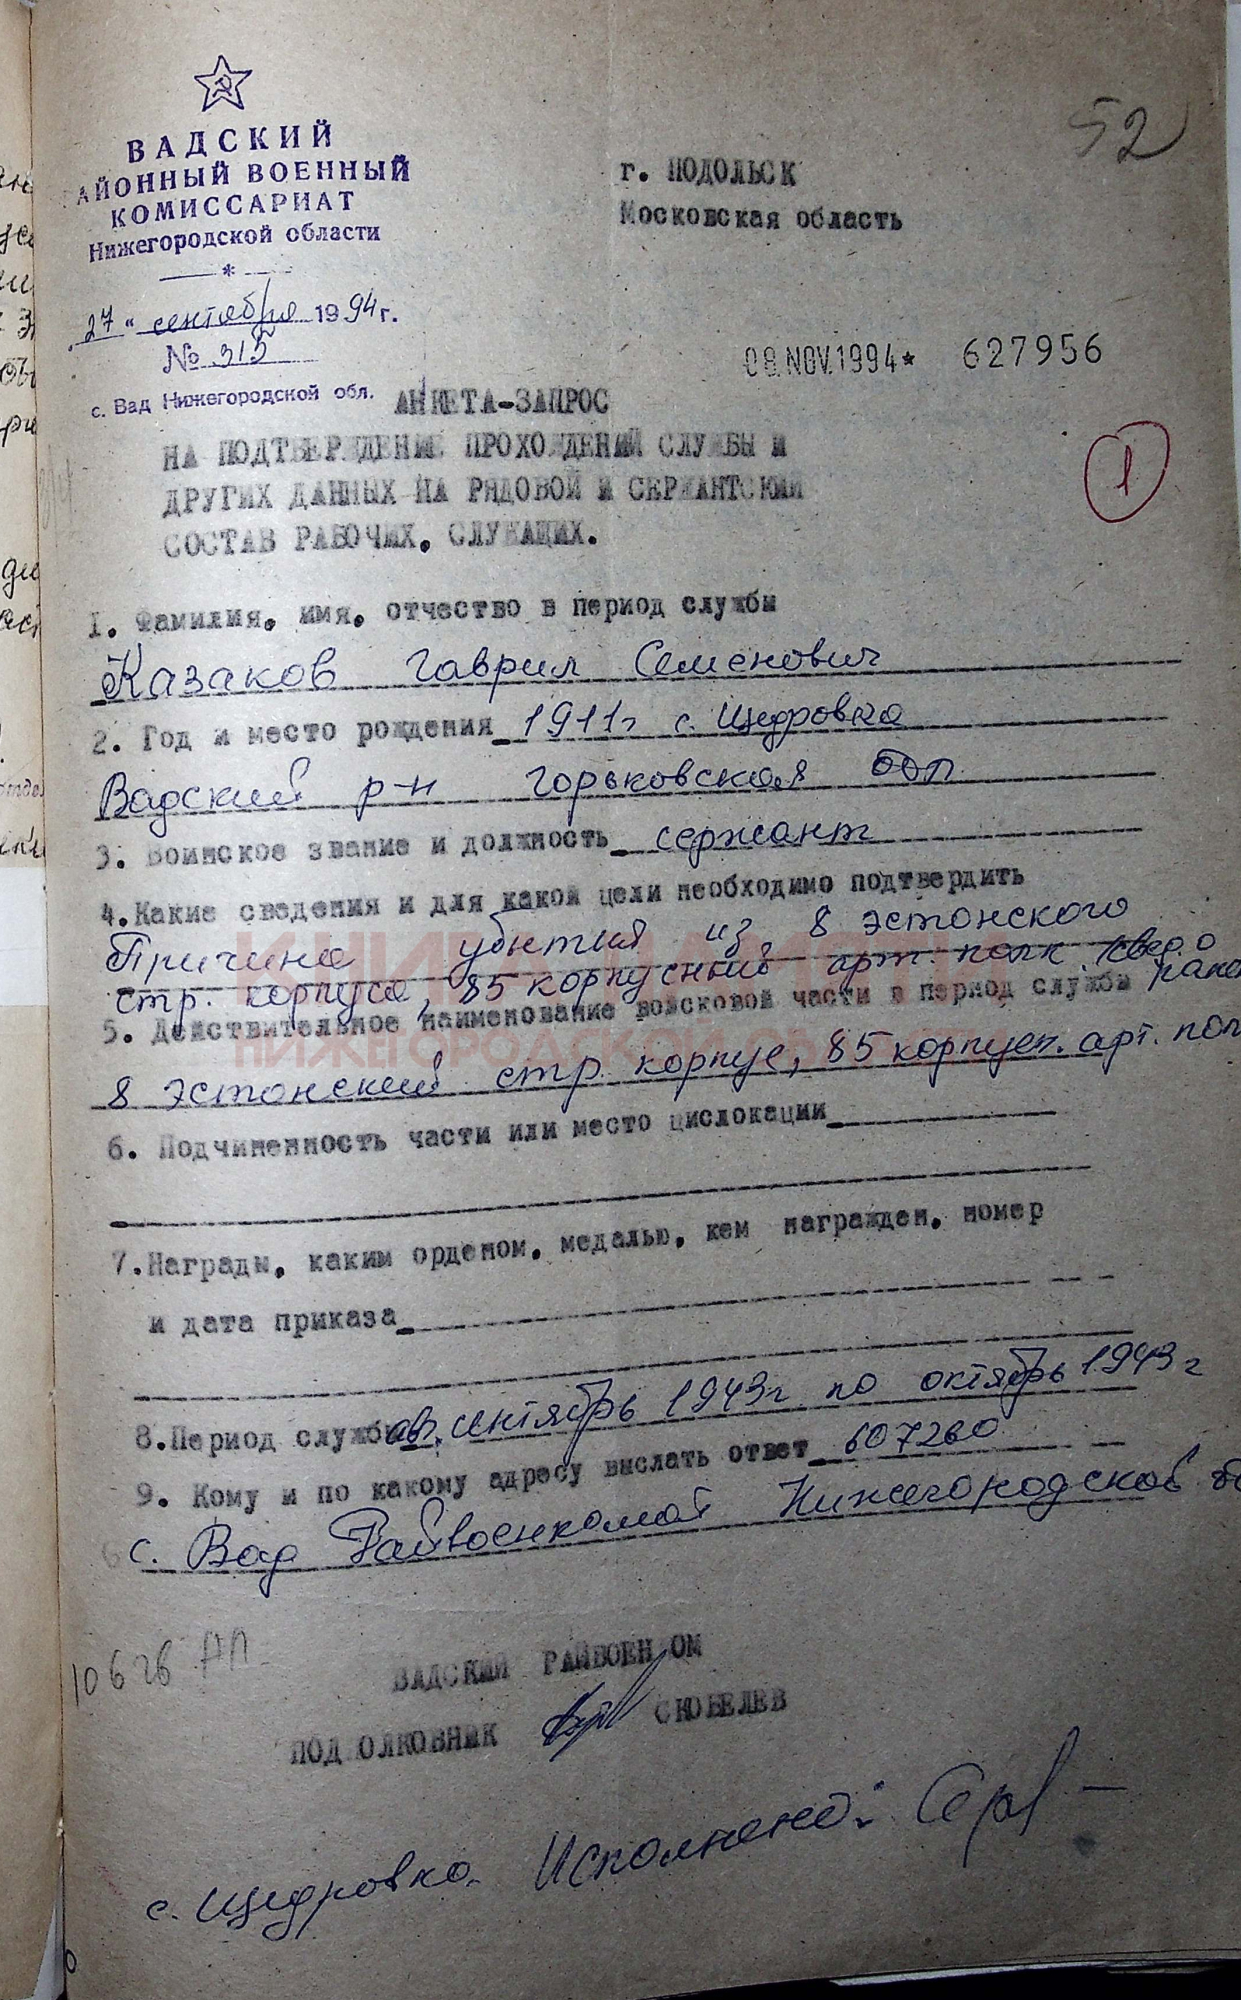 52
ВАДСКИЙ
РАЙОННЫЙ ВОЕННЫЙ
КОМИССАРИАТ
Нижегородской области
*
27 " сентября 1994 г.
№ 315
с. Вад Нижегородской обл.
г. ПОДОЛЬСК
Московская область
08.NOV.1994* 627956
1
АНКЕТА-ЗАПРОС
НА ПОДТВЕРЖДЕНИЕ ПРОХОЖДЕНИЙ СЛУЖБЫ И
ДРУГИХ ДАННЫХ НА РЯДОВОЙ И СЕРЖАНТСКИЙ
СОСТАВ РАБОЧИХ, СЛУЖАЩИХ.
1. Фамилия, имя, отчество в период службы
Казаков Гаврил Семенович
2. Год и место рождения 1911г с. Щедровка
Вадский р-н Горьковская обл
3. Воинское звание и должность сержант
4. Какие сведения и для какой цели необходимо подтвердить
Причина убытия из 8 эстонского
стр. корпуса, 85 корпусный арт. полк.
5. Действительное наименование войсковой части в период службы
8 эстонский стр. корпус, 85 корпусн. арт. пол
6. Подчиненность части или место цислокации
7. Награды, каким орденом, медалью, кем награжден, номер
и дата приказа
8. Период службы сентябрь 1943г по октябрь 1943г
9. Кому и по какому адресу выслать ответ 607260
с. Вад Райвоенкомат Нижегородской
10626 АП
ВАДСКИЙ РАЙВОЕНКОМ
ПОДПОЛКОВНИК СКОБЕЛЕВ
с. Щедровка.
КНИГА ПАМЯТИ
НИЖЕГОРОДСКОЙ ОБЛАСТИ